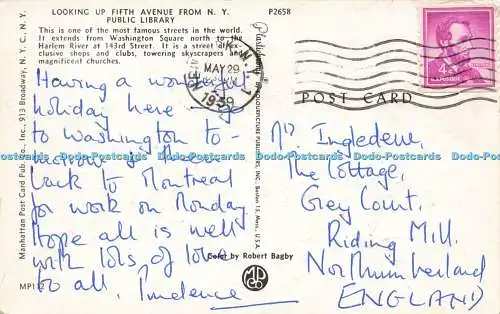 LOOKING UP FIFTH AVENUE FROM N. Y.
PUBLIC LIBRARY
P2658
This is one of the most famous streets in the world.
It extends from Washington Square north to the
Harlem River at 143rd Street. It is a street of ex-
clusive shops and clubs, towering skyscrapers and
magnificent churches.
MAY 29
1959
4¢
POST CARD
Having a wonderful
holiday here. go
to Washington to-
morrow & then
back to Montreal
for work on Monday
Hope all is well
with lots of love
to all, Prudence
Mrs Ingledew,
The Cottage,
Grey Court,
Riding Mill.
Northumberland
ENGLAND
Color by Robert Bagby
MPC
CO
MP112
Manhattan Post Card Pub. Co., Inc., 913 Broadway, N.Y.C., N.Y.
Plastichrome
COLOURPICTURE PUBLISHERS, INC. Boston 15, Mass., U.S.A.
Dodo-Postcards Dodo-Postcards Dodo-Postcards Dodo-Postcards Dodo-Postcards Dodo-Postcards